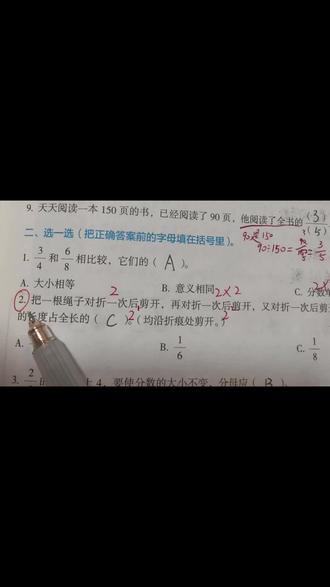 9. 天天阅读一本 150 页的书，已经阅读了 90 页，他阅读了全书的 (3)/(5)
90是150
90÷150=90/150=3/5
二、选一选（把正确答案前的字母填在括号里）。
1. 3/4 和 6/8 相比较，它们的（ A ）。
A. 大小相等 B. 意义相同 C. 分数单
2 2×2 2×
2. 把一根绳子对折一次后剪开，再对折一次后剪开，又对折一次后剪
的长度占全长的（ C ）。（均沿折痕处剪开。）
A. B. 1/6 C. 1/8
3. 2/ 上 4，要使分数的大小不变，分母应（ B ）。